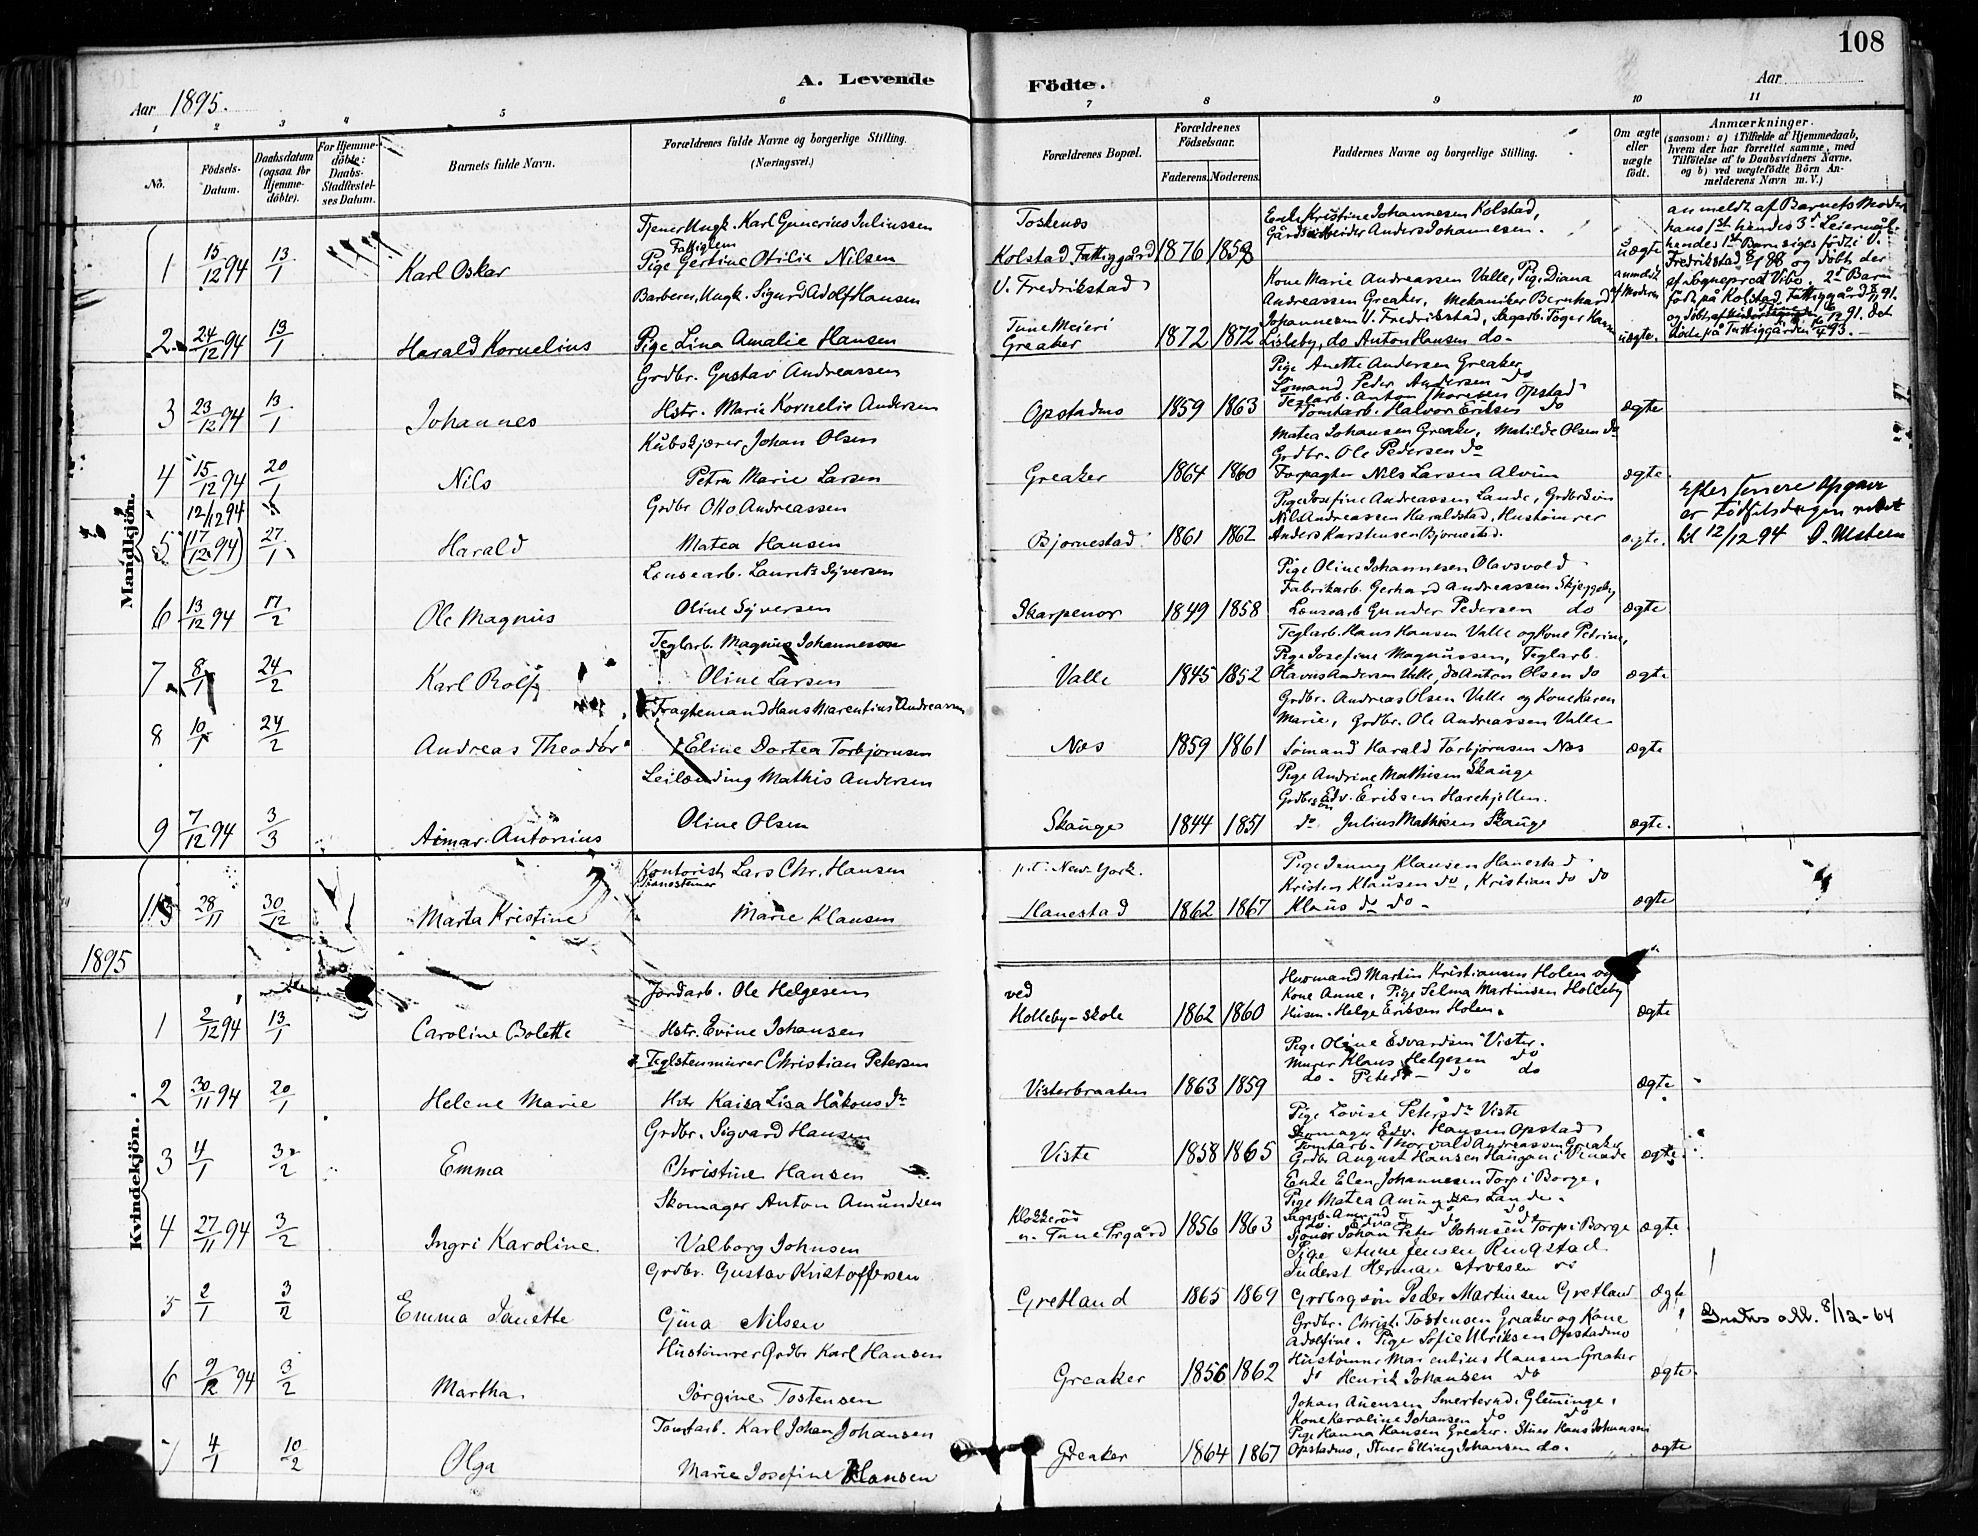 108
A. Levende Födte.
Aar 1895.
Aar
1 2 3 4 5 6 7 8 9 10 11
No.
Födsels-Datum.
Daabsdatum (ogsaa for Hjemme-döbte).
For Hjemme-döbte: Daabs-Stadfæstel-ses Datum.
Barnets fulde Navn.
Forældrenes fulde Navne og borgerlige Stilling. (Næringsvei.)
Forældrenes Bopæl.
Forældrenes Födselsaar.
Faderens. Moderens.
Faddernes Navne og borgerlige Stilling.
Om ægte eller uægte födt.
Anmærkninger.
(saasom: a) i Tilfælde af Hjemmedaab, hvem der har forrettet samme, med Tilföielse af to Daabsvidners Navne, og b) ved uægtefödte Börn An-melderens Navn m. V.)
Mandkjön.
Tjener Ungk. Karl Gunerius Juliussen
Fattiglem
1 15/12 94 13/1 Karl Oskar Pige Gertine Otilie Nilsen
Toskenæs
Kolstad Fattiggård 1876 1859
V. Fredrikstad
Enke Kristine Johannesen Kolstad,
Gårdsarbeider Anders Johannesen.
uægte
anmeldt af Moderen
anmeldt af Barnets Moder
hans 1st hendes 3d Leiermål.
hendes 1st Barn siges født i V.
Fredrikstad 88 og døbt der
af Sogneprest Vibo. 2d Barn
født på Kolstad Fattiggård 91.
Barberer, Ungk. Sigurd Adolf Hansen
2 24/12 94 13/1 Harald Kornelius Pige Lina Amalie Hansen
Tune Meieri
Greaker 1872 1872
Kone Marie Andreassen Valle, Pige Diana
Andreassen Greaker, Mekaniker Bernhard
Johannesen V. Fredrikstad, Sagarb. Toger Hansen
Lisleby, do Anton Hansen do.
uægte.
døde på Fattiggården 93.
Grdbr. Gustav Andreassen
3 23/12 94 13/1 Johannes Hstr. Marie Kornelie Andersen
Opstadmo 1859 1863
Pige Anette Andersen Greaker
Sømand Peder Andersen do
Teglarb. Anton Thoresen Opstad
Tomtarb. Halvor Eriksen do
ægte
Kubskjærer Johan Olsen
4 15/12 94 20/1 Nils Petra Marie Larsen
Greaker 1864 1860
Matea Johansen Greaker, Matilde Olsen do
Grdbr. Ole Pedersen do
Forpagter Nils Larsen Alvim
ægte
Grdbr Otto Andreassen
12/12 94
5 (17/12 94) 27/1 Harald Matea Hansen
Bjørnestad 1861 1862
Pige Josefine Andreassen Lande, Grdbrsøn
Nils Andreassen Haraldstad, Hustømrer
Anders Karstensen Bjørnestad.
ægte.
Efter senere Opgave
er Fødselsdagen rettet
til 12/12 94
Lensearb. Laurits Syversen
6 13/12 94 17/2 Ole Magnus Oline Syversen
Skarpenor 1849 1858
Pige Oline Johannesen Olavsvold
Fabrikarb. Gerhard Andreassen Skjeggeby
Lensearb Gunder Pedersen do
ægte
Teglarb. Magnus Johannesen
7 8/1 24/2 Karl Rolf Oline Larsen
Valle 1845 1852
Teglarb. Hans Hansen Valle og Kone Petrine,
Pige Josefine Magnussen, Teglarb.
Olavus Andersen Valle, do Anton Olsen do
ægte
Fragtemand Hans Marentius Andreassen
8 10/1 24/2 Andreas Theodor Eline Dortea Torbjørnsen
Næs 1859 1861
Grdbr. Andreas Olsen Valle og Kone Karen
Marie, Grdbr. Ole Andreassen Valle
Sømand Harald Torbjørnsen Næs
ægte
Leilænding Mathis Andersen
9 7/12 94 3/3 Aimar Antonius Oline Olsen
Skauge 1844 1851
Pige Andrine Mathisen Skauge
Grdbrsøn Edv. Eriksen Harehjellen.
do Julius Mathisen Skauge
ægte.
Kontorist Lars Chr. Hansen
28/11 30/12 Marta Kristine Marie Klausen
p.t. New-York.
Hanestad 1862 1867
Pige Jenny Klausen Hanestad
Kristen Klausen do, Kristian do do
Klaus do do
ægte
1895
Kvindekjön.
Jordarb. Ole Helgesen
1 2/12 94 13/1 Caroline Bolette Hstr. Evine Johansen
ved
Holleby-skole 1862 1860
Husmand Martin Kristiansen Holen og
Kone Anne, Pige Selma Martinsen Holleby
Husm. Helge Eriksen Holen.
ægte
Teglstensmurer Christian Petersen
2 30/11 94 20/1 Helene Marie Hstr Kaisa Lisa Håkonsdr
Visterbraaten 1863 1859
Pige Oline Edvardsen Vister.
Murer Klaus Helgesen do
do. Peter do do
ægte
Grdbr. Sigvard Hansen
3 4/1 3/2 Emma Christine Hansen
Viste 1858 1865
Pige Lovise Petersdr Viste
Skomager Edv. Hansen Opstad
Tomtarb. Thorvald Andreassen Greaker
Grdbr August Hansen Haugan i Vinade
ægte.
Skomager Anton Amundsen
4 27/11 94 3/2 Ingri Karoline Valborg Johnsen
Klokkerød
n. Tune Prgård 1856 1863
Enke Elen Johannesen Torp i Borge,
Pige Matea Amundsen Lande.
Sagarb. Amund do do
Tjener Johan Peter Johnsen Torp i Borge
ægte.
Grdbr. Gustav Kristoffersen
5 2/1 3/2 Emma Janette Gina Nilsen
Gretland 1865 1869
Pige Anne Jensen Ringstad
Inderst Herman Arvesen do
Grdbrgsøn Peder Martinsen Gretland
ægte
8/12-64
Hustømrer Grdbr Karl Hansen
6 9/12 94 3/2 Martha Jørgine Tostensen
Greaker 1856 1862
Grdbr. Christ. Tostensen Greaker og Kone
Adolfine. Pige Sofie Ulriksen Opstadmo
Hustømrer Marentius Hansen Greaker
do Henrik Johansen do
ægte.
Tomtarb. Karl Johan Johansen
7 4/1 10/2 Olga Marie Josefine Hansen
Greaker 1864 1867
Johan Auensen Smertu i Glemminge,
Kone Karoline Johansen do do
Pige Hanna Hansen Greaker. Stuer Hans Johansen
Opstadmo, Stuer Elling Johansen do.
ægte